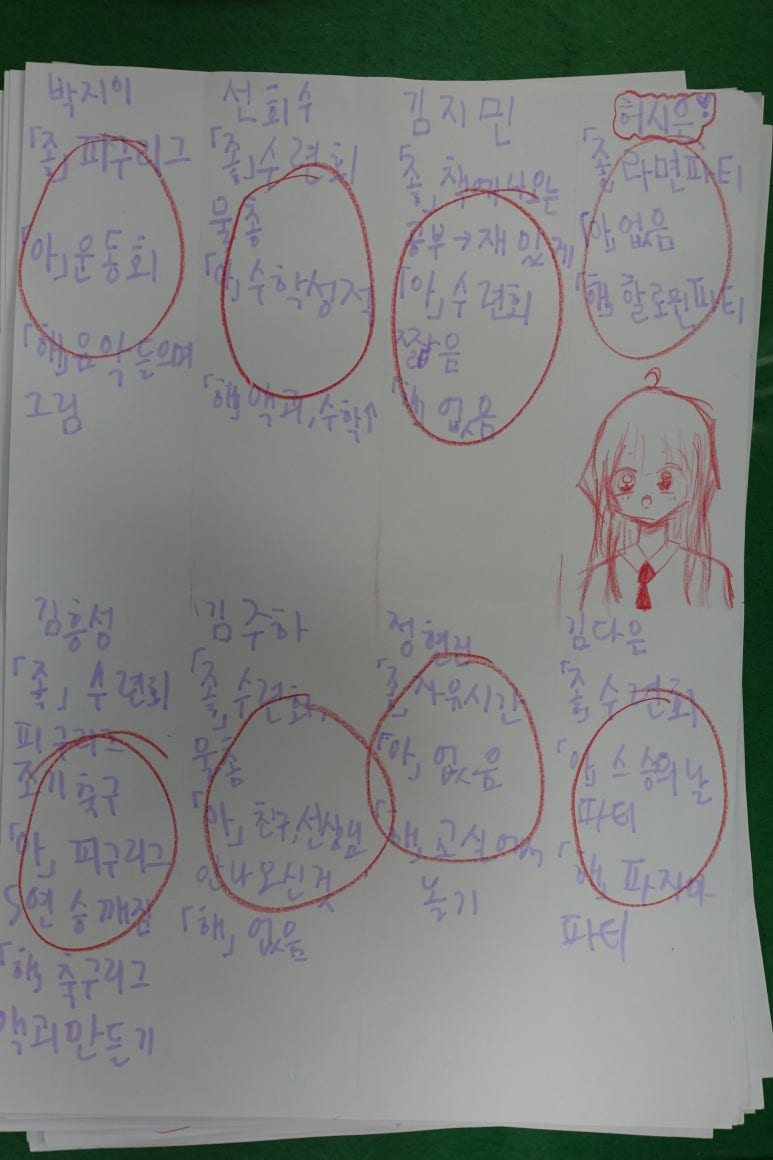 박지이
「좋」 피구리그
「아」 운동회
「해」 음악 들으며
그림
선회수
「좋」 수련회
묵찜
「아」 수학성적
「해」 약과, 수학↑
김지민
「좋」 책에 나오는
공부→재밌게
「아」 수련회
짧음
「해」 없음
허시은
「좋」 라면파티
「아」 없음
「해」 할로윈파티
김흥성
「좋」 수련회
피구리그
조기축구
「아」 피구리그
5연승 깨짐
「해」 축구리그
약과만들기
김주하
「좋」 수련회,
「아」 친구, 선생님
안나오신것
「해」 없음
정현진
「좋」 자유시간
「아」 없음
「해」 교실에서
놀기
김다은
「좋」 수련회
「아」 스승의날
파티
「해」 파자마
파티